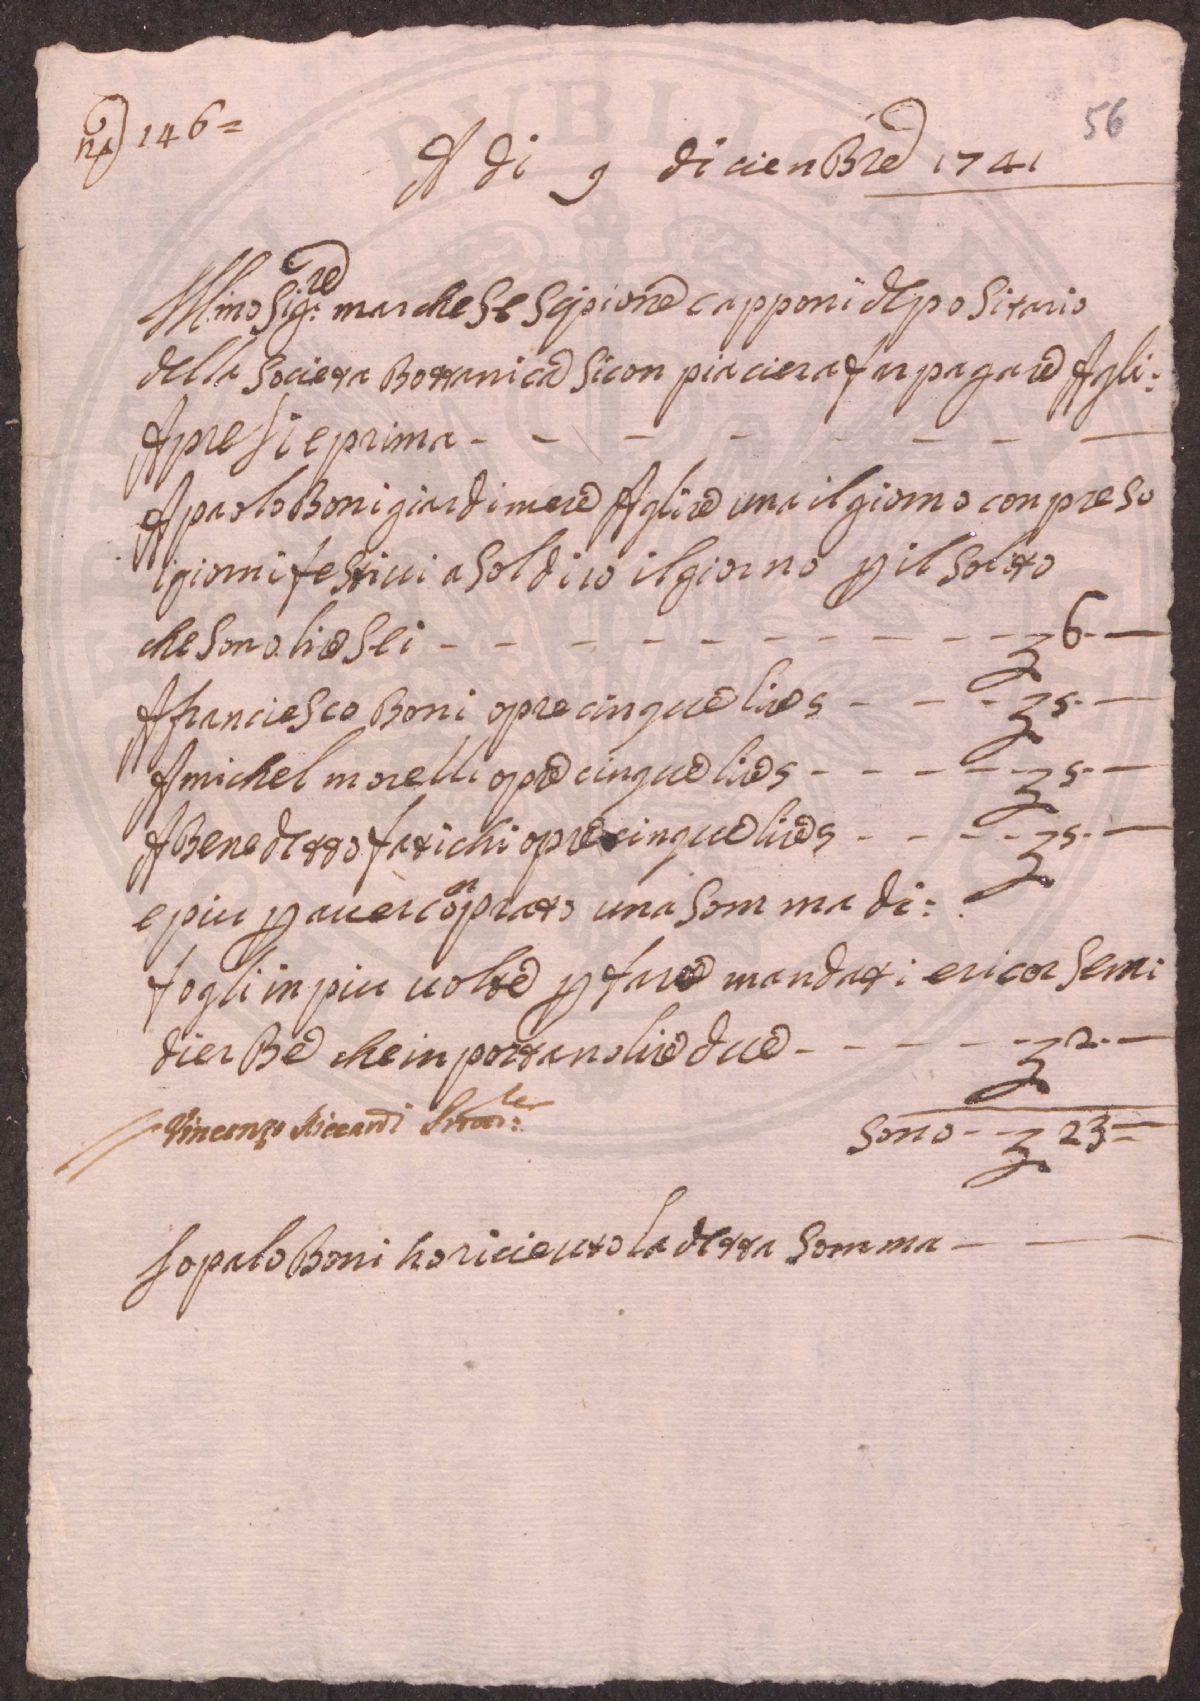 nº 146=
56
A di 9 diciembre 1741
Illmo Sigre: marchese Scipione Capponi depositario
della Societa Bottanica Si con piaciera far pagare Agli:
Apresieprima - - - - - - - -
A paolo Boni giardiniere A lire una il giorno conpreso
i giorni festiui a soldi 10 il giorno p il solito
che sono lire sei - - - - - - - - - - £ 6 -
A franciesco Boni opre cinque lire 5 - - - £ 5 -
A michel morelli opre cinque lire 5 - - - - £ 5 -
A Benedetto fatichi opre cinque lire 5 - - - - £ 5 -
e piu p auer conprato una somma di:
fogli in piu uolte p fare mandati e ricor Semi
di erBe che inportano lire due - - - - - £ 2 -
Vincenzo Riccardi
Sono - - £ 23 =
Io palo Boni ho riceuto la detta Somma - - -